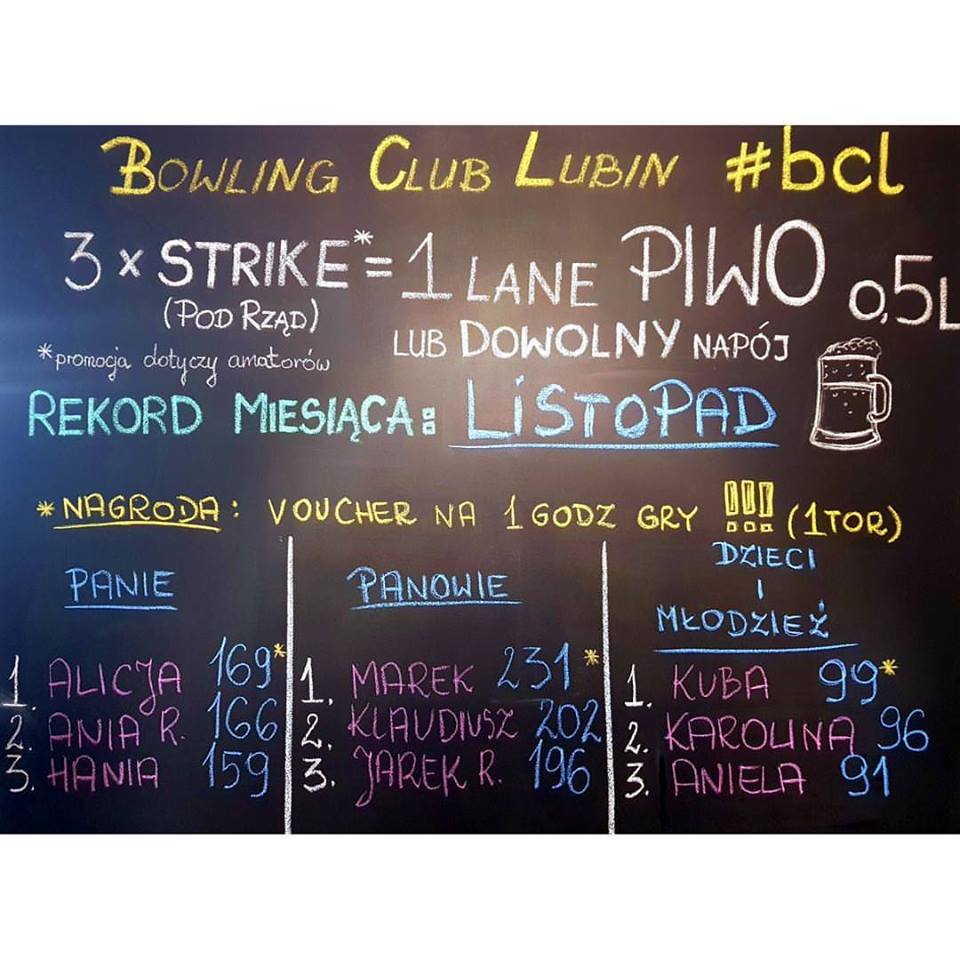 BOWLING CLUB LUBIN #bcl
3 x STRIKE* = 1 LANE PIWO 0,5L
(POD RZĄD)
LUB DOWOLNY NAPÓJ
*promocja dotyczy amatorów
REKORD MIESIĄCA: LiSTOPAD
*NAGRODA: VOUCHER NA 1 GODZ GRY !!! (1TOR)
PANIE
1. ALICJA 169*
2. ANIA R. 166
3. HANIA 159
PANOWIE
1. MAREK 231*
2. KLAUDIUSZ 202
3. JAREK R. 196
DZIECI
I
MŁODZIEŻ
1. KUBA 99*
2. KAROLINA 96
3. ANIELA 91